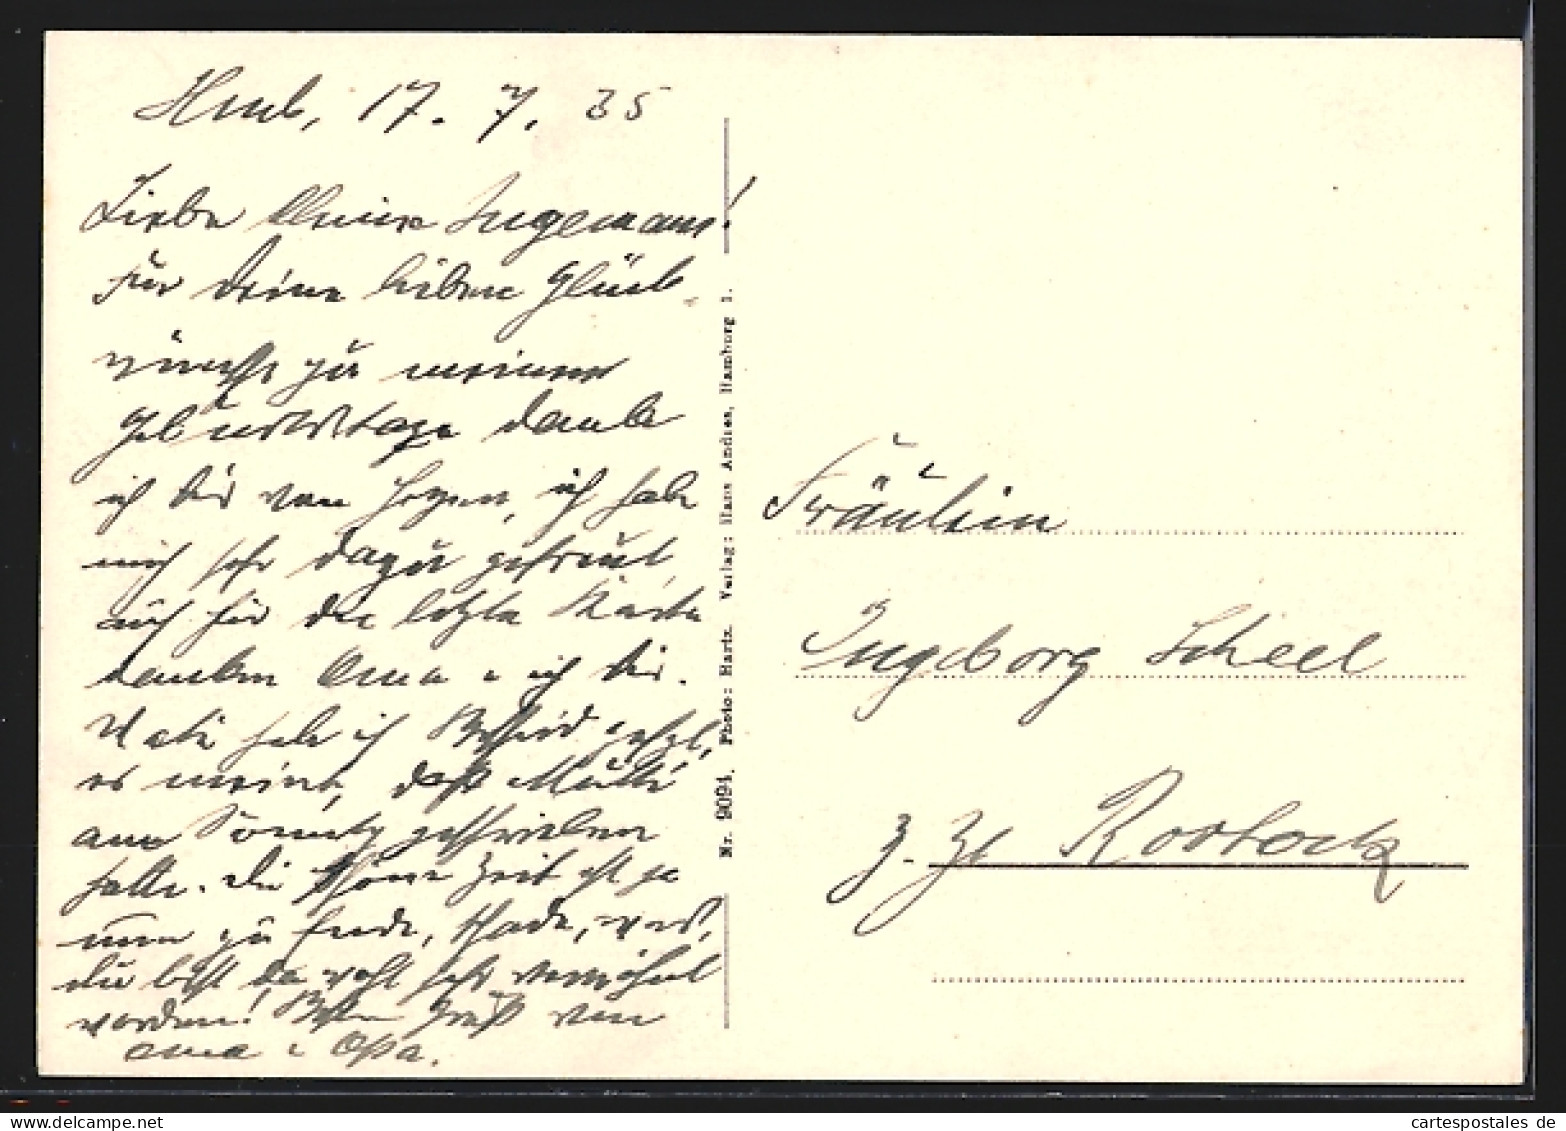 Hmb, 17. 7. 35
Liebe kleine Ingemaus!
Für Deine lieben Glück-
wünsche zu meinem
Geburtstage danke
ich dir von Herzen, ich habe
mich sehr dazu gefreut,
auch für die letzte Karte
danken Oma u ich dir.
Vati habe ich Bescheid gesagt,
er meint, daß Mutti
am Sonntg geschrieben
hatte. Die schöne Zeit ist ja
nun zu Ende, schade, was,
du bist da wohl sehr verwöhnt
worden! Besten Gruß von
Oma u Opa.
Nr. 9094. Photo: Hartz. Verlag: Hans Andres, Hamburg 1.
Fräulein
Ingeborg Scheel
z. Zt Rostock
cartespostales de